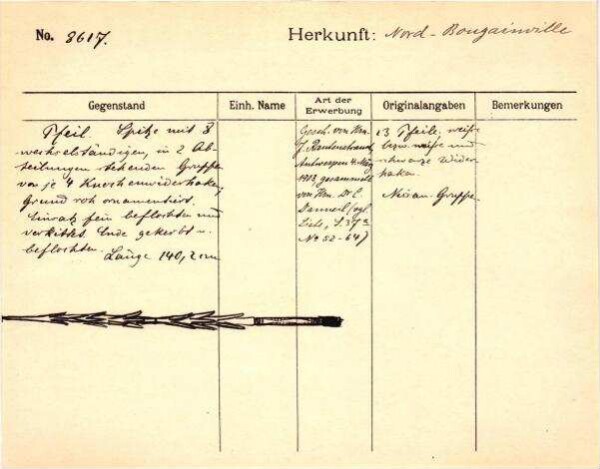 No. 3617.
Herkunft: Nord-Bougainville
Gegenstand
Einh. Name
Art der Erwerbung
Originalangaben
Bemerkungen
Pfeil. Spitze mit 8
wechselständigen, in 2 Ab-
teilungen stehenden Gruppen
von je 4 Knochenwiderhaken,
Grund roh ornamentiert.
Einsatz fein beflochten und
verkittet. Ende gekerbt u.
beflochten. Länge 140,2 cm
Gesch. von Hrn.
J.
Antwerpen
1913, gesammelt
von Hrn. Dr.
Liste, S. 37
No 52-64)
13 Pfeile, weiße
bezw. weiße und
schwarze Wider-
haken.
Nissan-Gruppe.